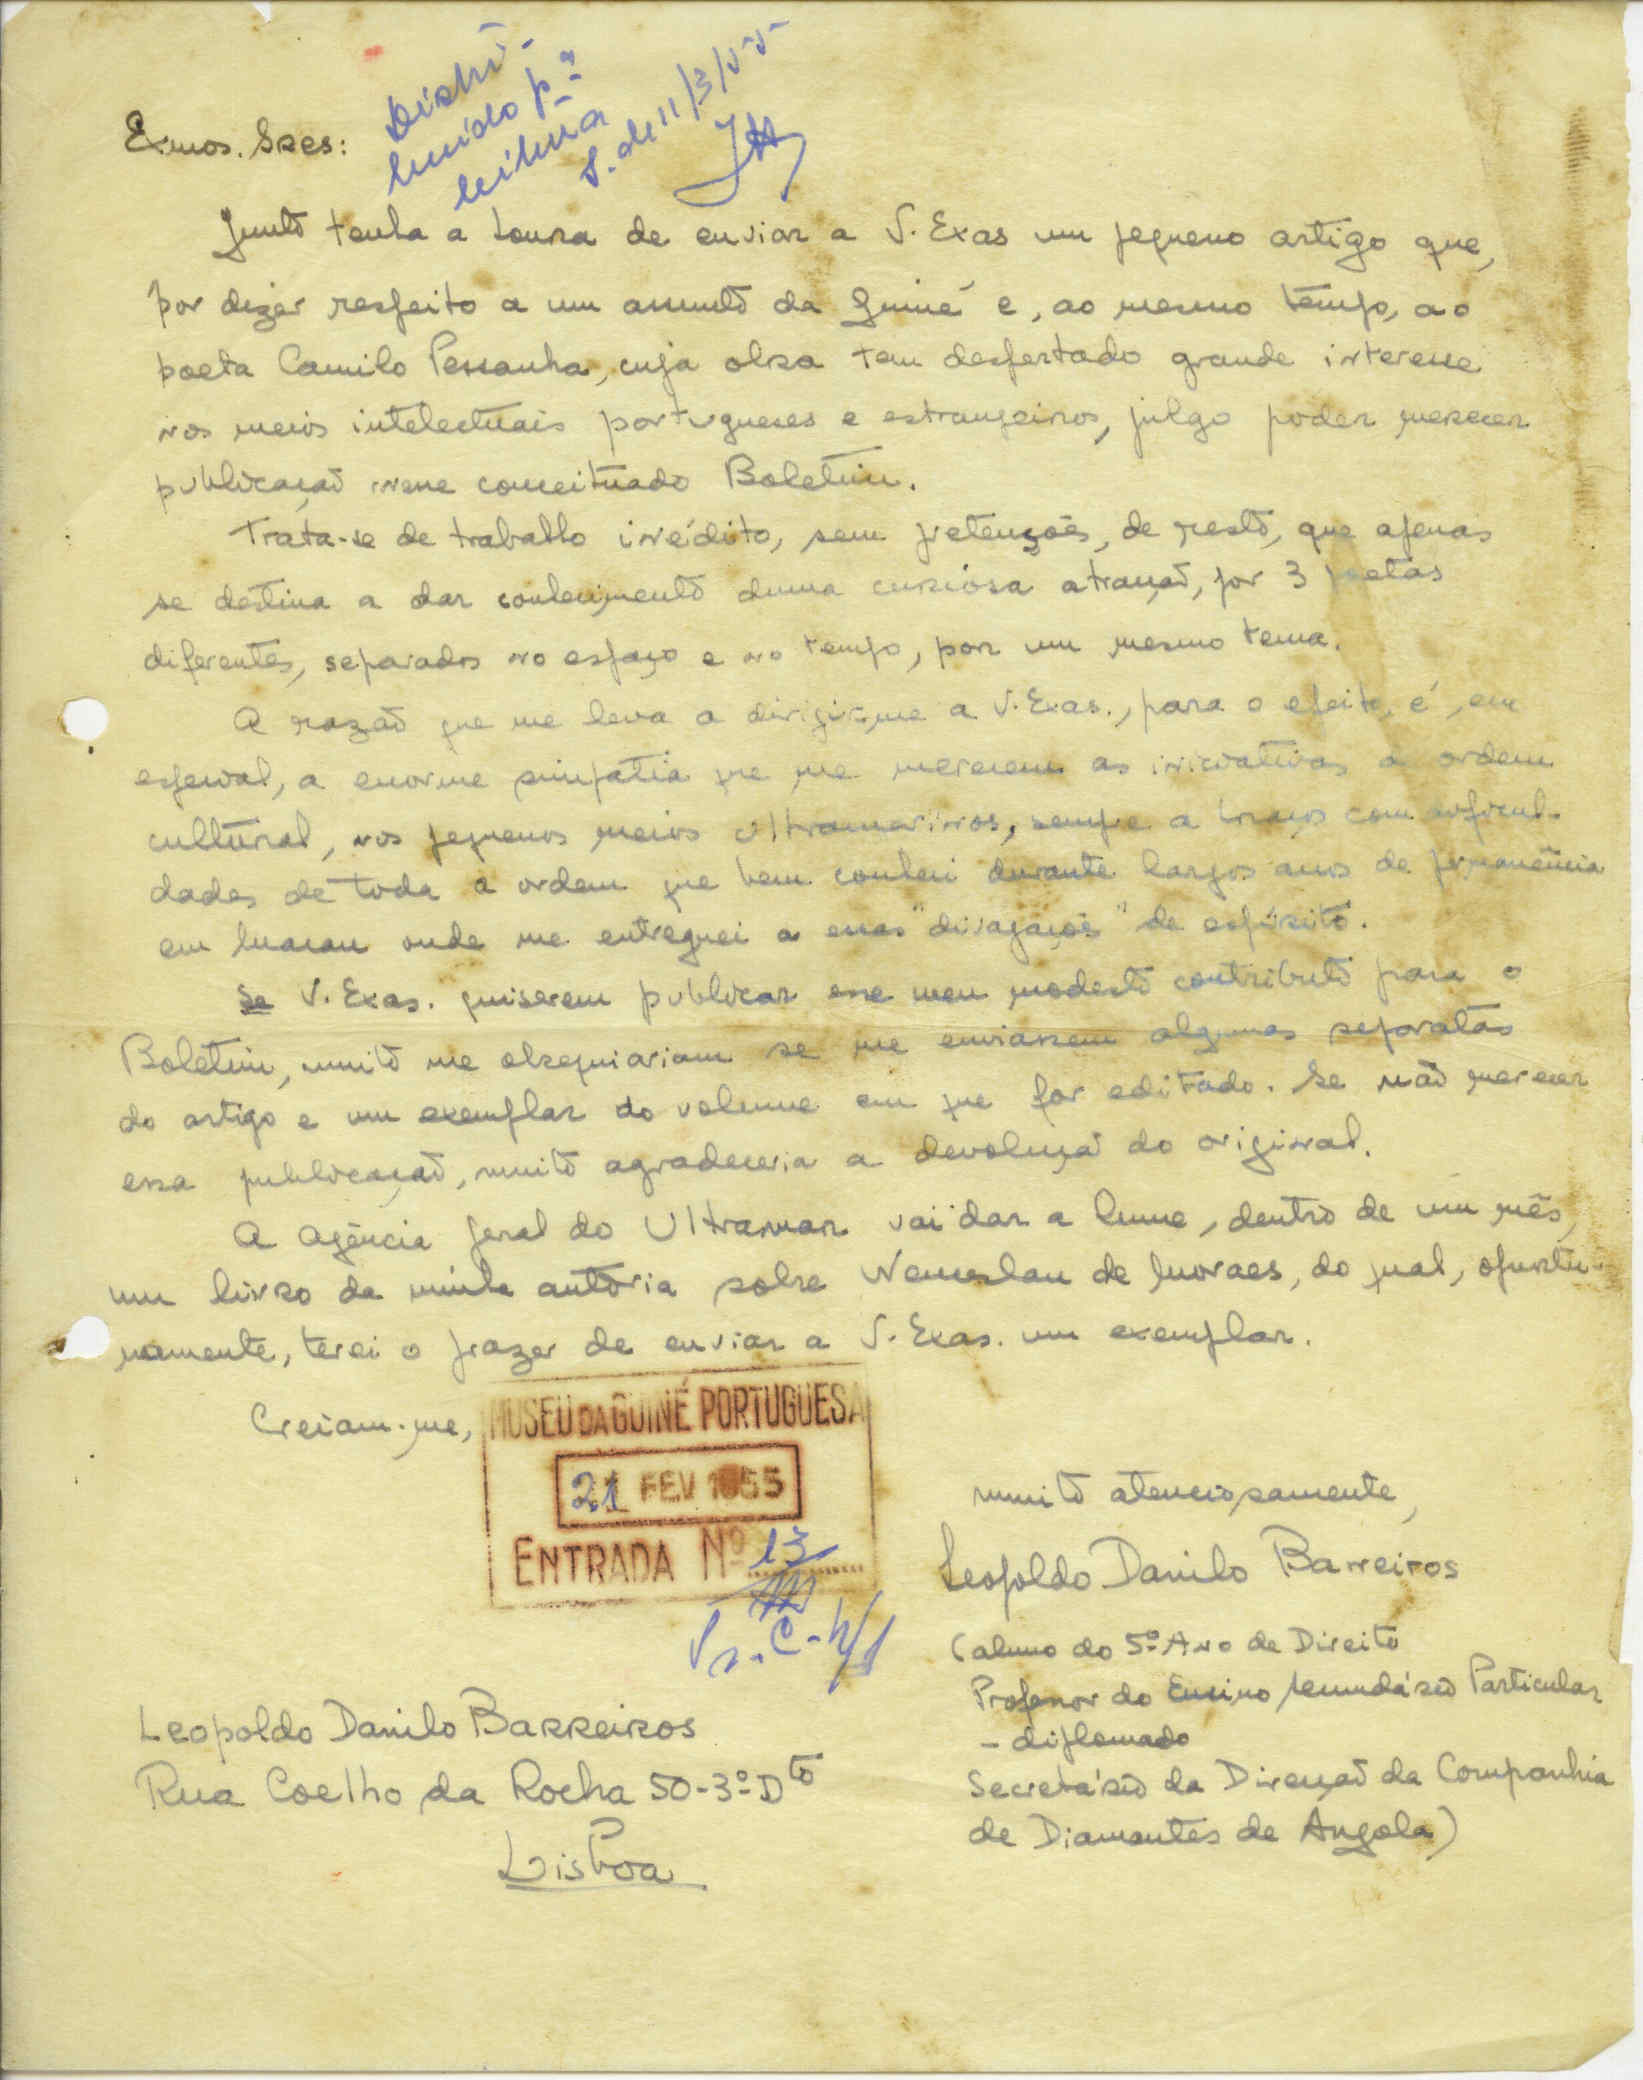 Distri-
buido pª
leitura
S. de 11/3/55
Exmos. Sres:
Junto tenho a honra de enviar a V. Exas um pequeno artigo que,
por dizer respeito a um assunto da Guiné e, ao mesmo tempo, ao
poeta Camilo Pessanha, cuja obra tem despertado grande interesse
nos meios intelectuais portugueses e estrangeiros, julgo poder merecer
publicação nesse conceituado Boletim.
Trata-se de trabalho inédito, sem pretenções, de resto, que apenas
se destina a dar conhecimento duma curiosa atração, por 3 poetas
diferentes, separados no espaço e no tempo, por um mesmo tema.
A razão que me leva a dirigir-me a V. Exas., para o efeito, é, em
especial, a enorme simpatia que me merecem as iniciativas de ordem
cultural, nos pequenos meios Ultramarinos, sempre a braços com dificul-
dades de toda a ordem que bem conheci durante largos anos de permanência
em Macau onde me entreguei a essas "divagações" de espírito.
Se V. Exas. quiserem publicar esse meu modesto contributo para o
Boletim, muito me obsequiariam se me enviassem algumas separatas
do artigo e um exemplar do volume em que for editado. Se não merecer
essa publicação, muito agradeceria a devolução do original.
A Agência Geral do Ultramar vai dar a lume, dentro de um mês,
um livro da minha autoria sobre Wenceslau de Moraes, do qual, oportu-
namente, terei o prazer de enviar a V. Exas. um exemplar.
Creiam-me,
MUSEU DA GUINÉ PORTUGUESA
21 FEV 1955
ENTRADA Nº 13
muito atenciosamente,
Leopoldo Danilo Barreiros
(aluno do 5º Ano de Direito
Professor do Ensino Secundário Particular
- diplomado
Secretário da Direcção da Companhia
de Diamantes de Angola)
Leopoldo Danilo Barreiros
Rua Coelho da Rocha 50-3º-Dto
Lisboa